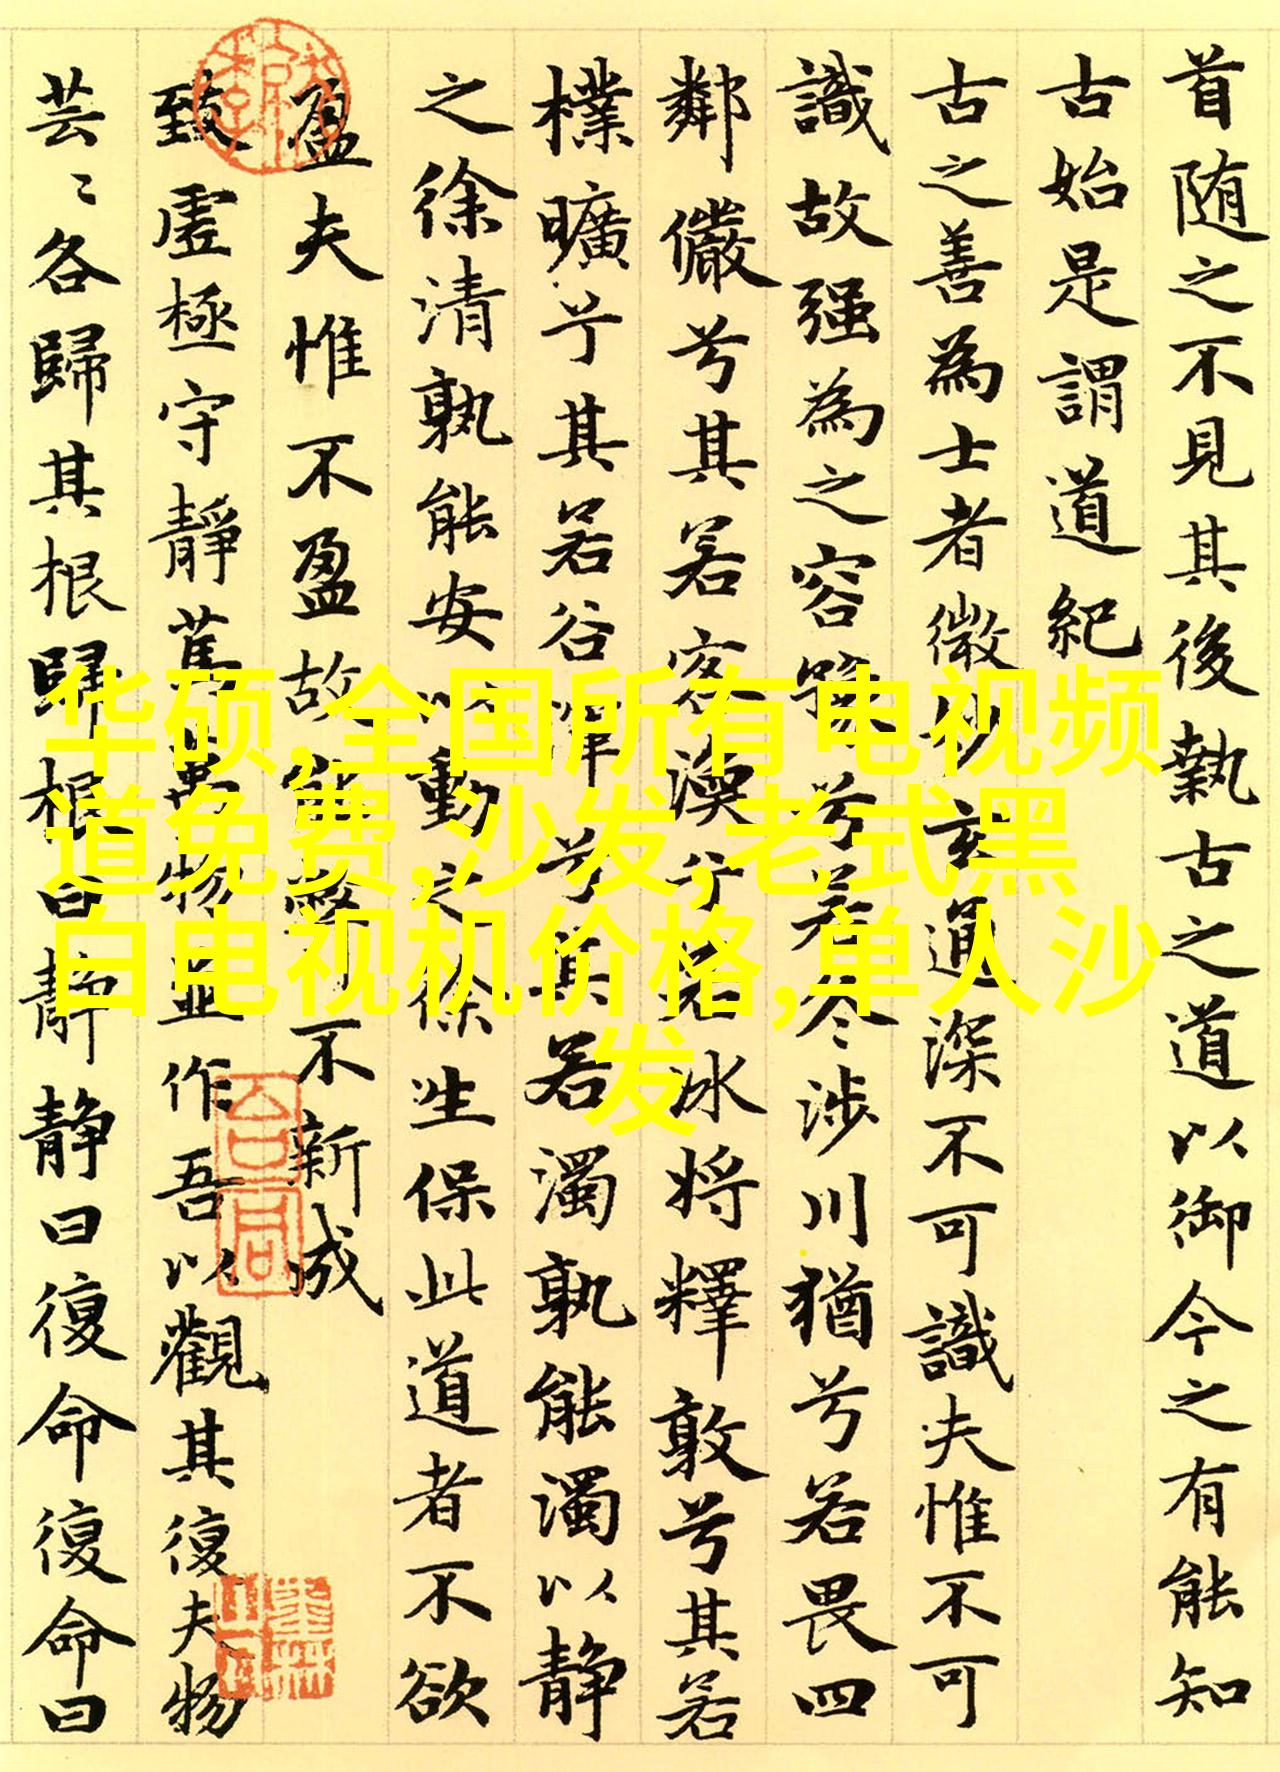 首随之不見其後執古之道以御今之有能知
古始是謂道紀
古之善為士者微妙玄通深不可識夫惟不可
識故强為之容豫兮若冬涉川猶兮若畏四
鄰儼兮其若客渙兮若冰将釋敦兮其若
樸曠兮其若谷渾兮其若濁孰能濁以静
之徐清孰能安以動之徐生保此道者不欲
盈夫惟不盈故能弊不新成
致虚極守靜篤萬物並作吾以觀其復夫物
芸〻各歸其根歸根曰静静曰復命復命曰
华硕,全国所有电视频
道免费,沙发,老式黑
白电视机价格,单人沙
发